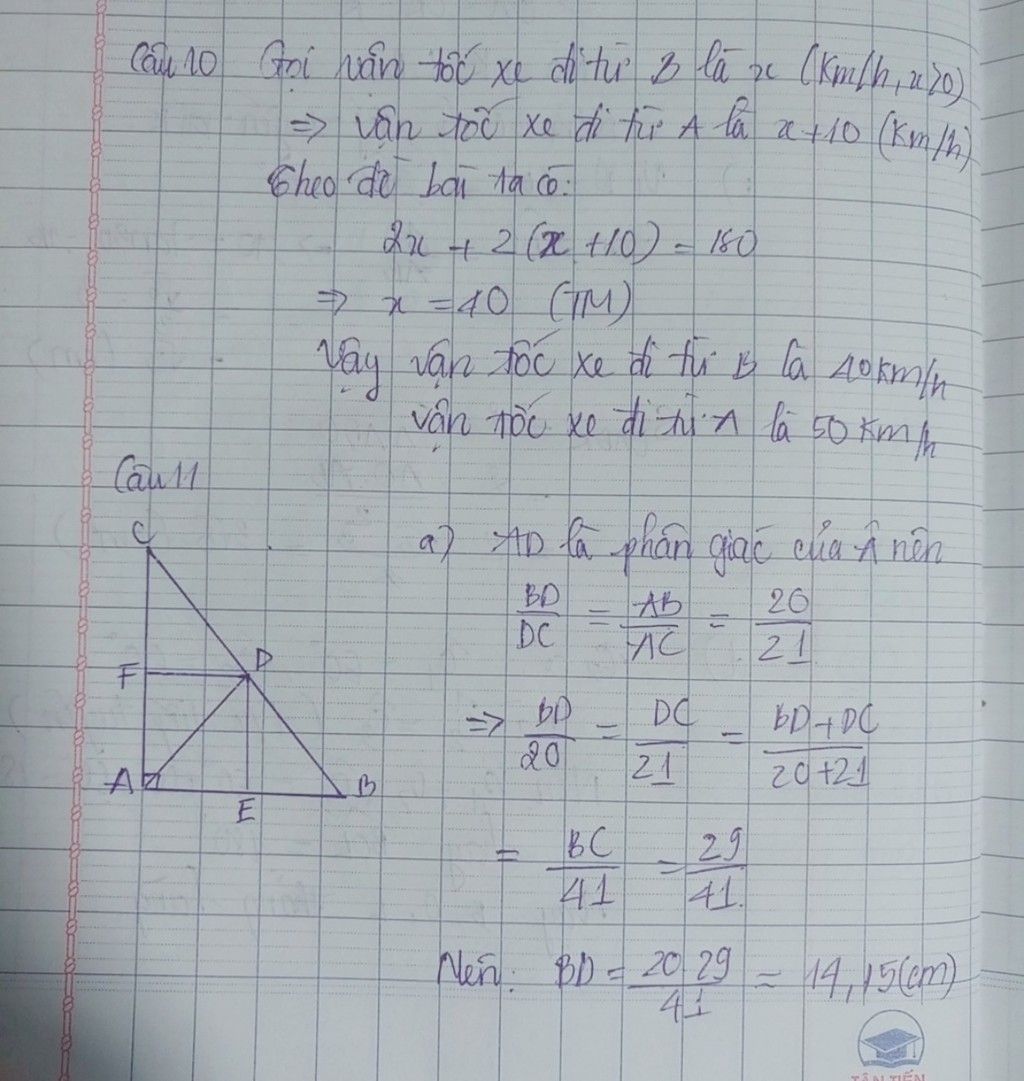 Câu 10 Gọi vận tốc xe đi từ B là x (km/h, x>0)
=> vận tốc xe đi từ A là x+10 (km/h)
Theo đề bài ta có:
2x + 2(x+10) = 180
=> x = 40 (TM)
Vậy vận tốc xe đi từ B là 40km/h
vận tốc xe đi từ A là 50 km/h
Câu 11
C
F D
A E B
a) AD là phân giác của Â nên
BD/DC = AB/AC = 20/21
=> BD/20 = DC/21 = BD+DC/20+21
= BC/41 = 29/41.
Nên: BD = 20.29/41 = 14,15(cm)
TÂN TIẾN